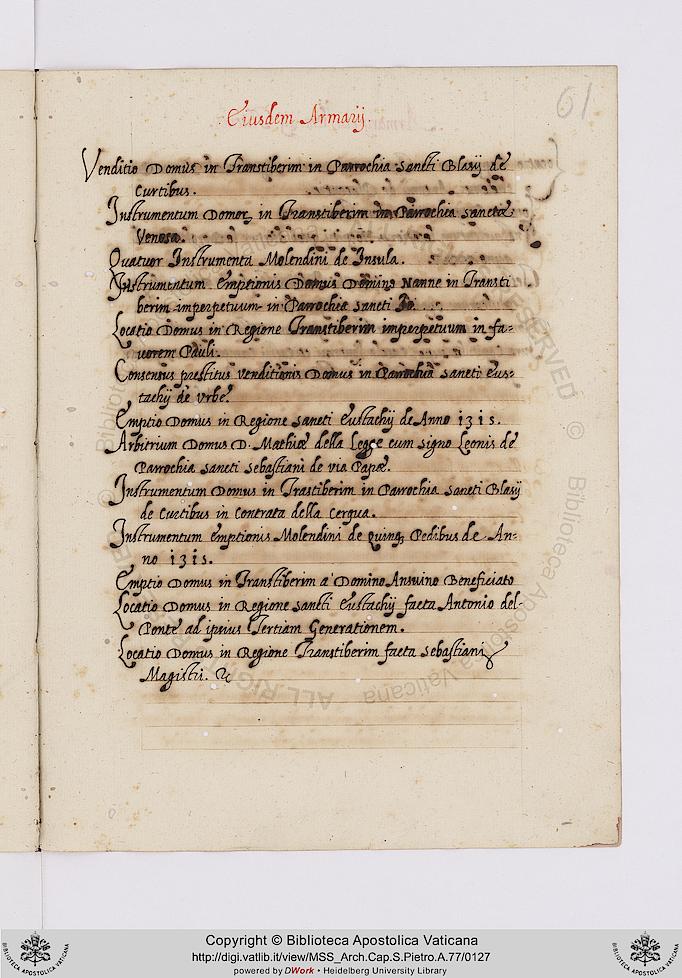 61
Eiusdem Armarij.
Venditio Domus in Transtiberim in Parrochia Sancti Blasij de
Curtibus.
Instrumentum Domor. in Transtiberim in Parrochia Sanctæ
Venosa.
Quatuor Instrumenta Molendini de Insula.
Instrumentum Emptionis Domus Domino Nanne in Transti
berim imperpetuum in Parrochia Sancti Io.
Locatio Domus in Regione Transtiberim imperpetuum in fa=
uorem Pauli.
Consensus prestitus venditionis Domus in Parrochia Sancti Eus=
tachij de Vrbe.
Emptio Domus in Regione Sancti Eustachij de Anno 1315.
Arbitrium Domus D. Mathiæ della Legge cum signo Leonis de
Parrochia Sancti Sebastiani de via Papæ.
Instrumentum Domus in Trastiberim in Parrochia Sancti Blasij
de Curtibus in Contrata della Cerqua.
Instrumentum Emptionis Molendini de Quinq; Pedibus de An=
no 1315.
Emptio Domus in Transtiberim a Domino Ansuino Beneficiato
Locatio Domus in Regione Sancti Eustachij facta Antonio del-
Ponte ad ipsius Tertiam Generationem.
Locatio Domus in Regione Transtiberim facta Sebastiani
Magistri. &c
Copyright © Biblioteca Apostolica Vaticana
http://digi.vatlib.it/view/MSS_Arch.Cap.S.Pietro.A.77/0127
powered by DWork • Heidelberg University Library